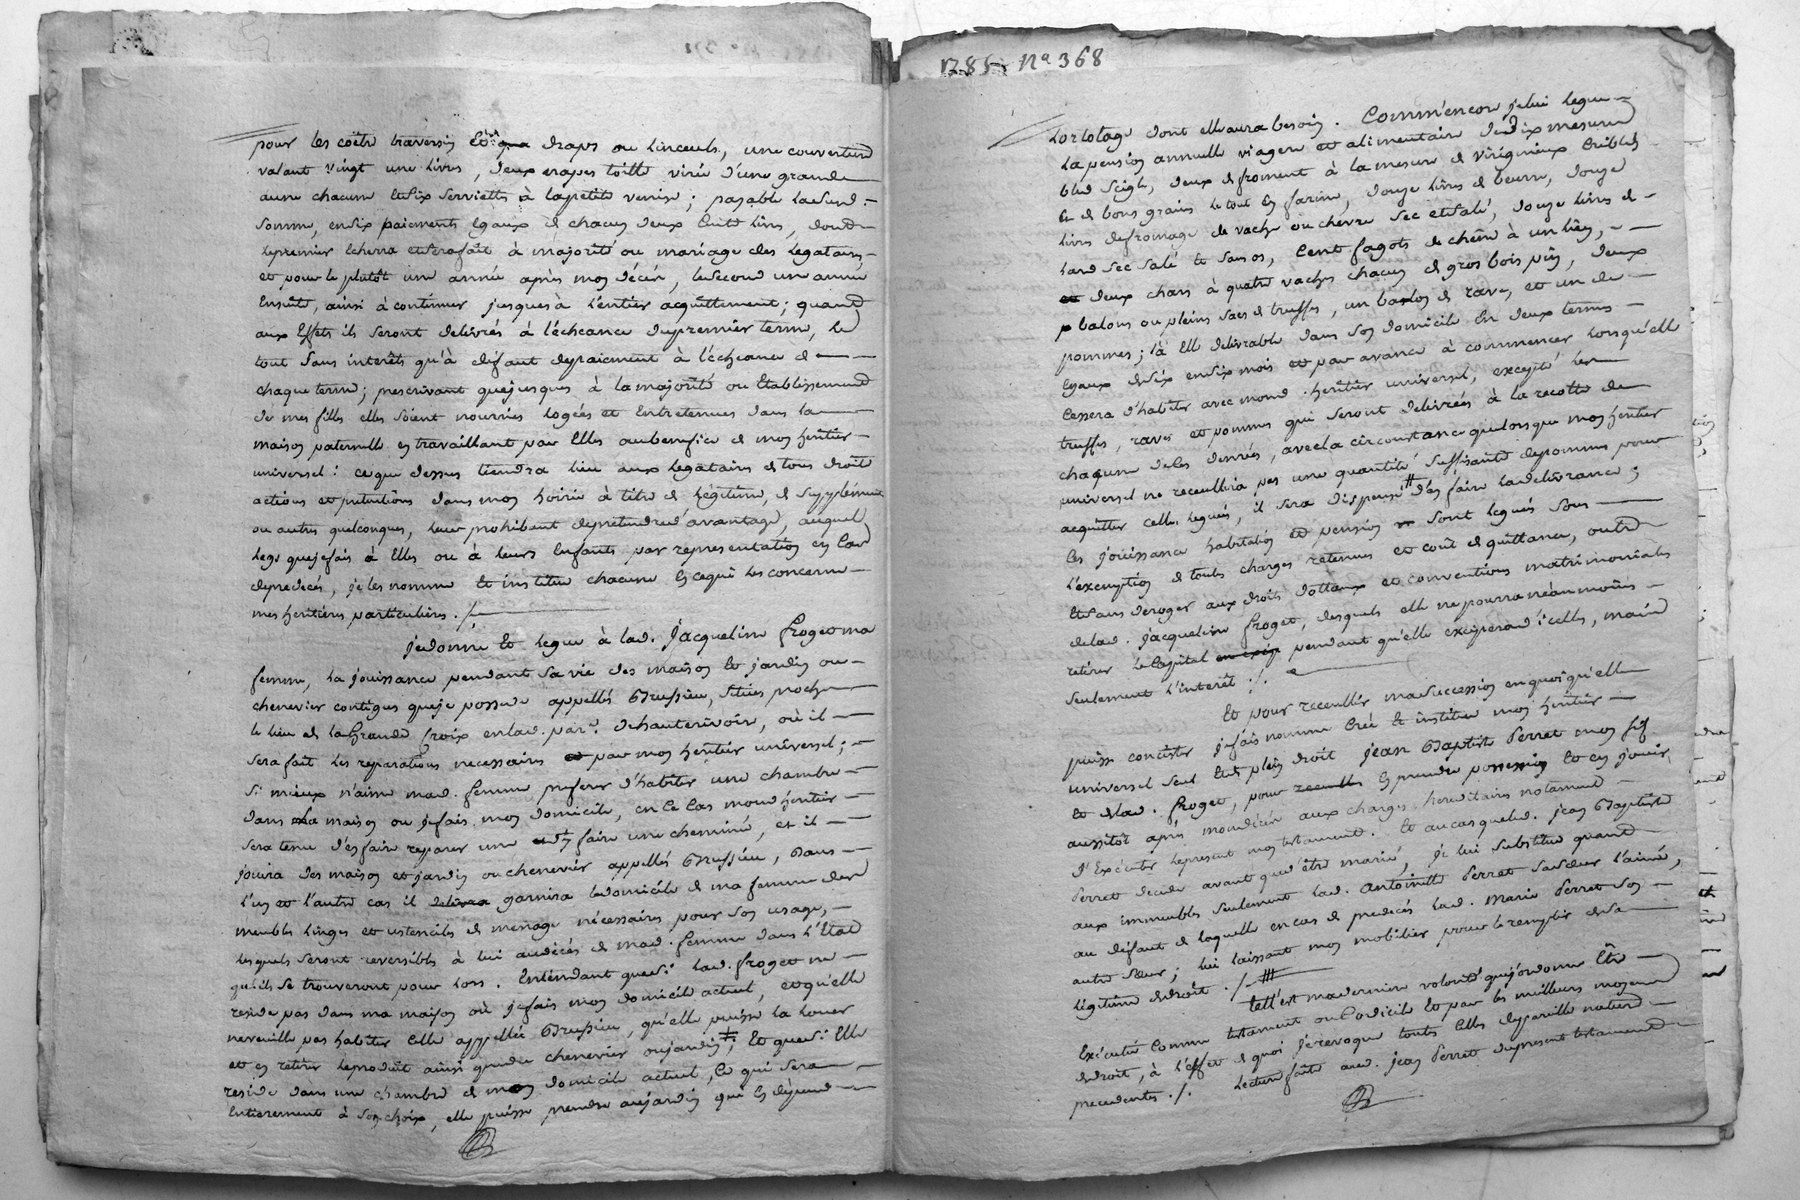 pour les coêtre traversin et six draps ou linceuls, une couverture
valant vingt une livres, deux napes toille virée d'une grande
aune chacune et six serviettes à la petite venise; payable ladse d.
somme, en six paiements egaux de chacun deux cent livres, dont
le premier echerra et sera fait à majorité ou mariage des legataires,
et pour le plutôt une année après mon décés, le second une année
ensuite, ainsi à continuer jusques à l'entier acquittement; quand
aux effets ils seront delivrés à l'échéance du premier terme, le
tout sans interêts qu'à défaut de paiement à l'échéance de
chaque terme; prescrivant que jusques à la majorité ou etablissement
de mes filles elles soient nourries logées et entretenues dans la
maison paternelle en travaillant par elles au benefice de mon héritier
universel: ce que dessus tiendra lieu aux legataires de tous droits
actions et pretentions dans mon hoirie à titre de légitime, de supplément
ou autres quelconques, leur prohibant de prétendre d'avantage, auquel
legs que je fais à elles ou à leurs enfants par representation en cas
de predecés, je les nomme et institue chacune en ce qui les concerne
mes heritières particulieres./.
je donne et legue à lad. Jacqueline froget ma
femme, la jouissance pendant sa vie des maison et jardin ou
chenevier contigus que je possede appellés Brussieu, situés proche
le lieu de la Grande Croix en lad. par.e de hauterivoire, où il
sera fait les reparations necessaires par mon héritier universel;
si mieux n'aime mad. femme preferer d'habiter une chambre
dans la maison ou je fais mon domicile, en ce cas mond. héritier
sera tenu d'en faire reparer une et d'y faire une cheminée, et il
jouira des maison et jardin ou chenevier appellés Brussieu, dans
l'un et l'autre cas il garnira le domicile de ma femme des
meubles linges et ustenciles de menage nécessaires pour son usage,
lesquels seront reversibles à lui au décés de mad. femme dans l'état
qu'ils se trouveront pour lors. Entendant que si lad. froget ne
reside pas dans ma maison où je fais mon domicile actuel, et qu'elle
ne veuille pas habiter celle appellée Brussieu, qu'elle puisse la louer
et en retirer le produit ainsi que du chenevier ou jardin ‡; et que si elle
reside dans une chambre de mon domicile actuel, ce qui sera
entierement à son choix, elle puisse prendre au jardin qui en dépend
1785 Na 368
l'ortolage dont elle aura besoin. Comm'encore je lui legue
la pension annuelle viagere et alimentaire de dix mesures
bled seigle, deux de froment à la mesure de virigneux criblés
et de bons grains le tout en farine, douze livres de beurre, douze
livres de fromage de vache ou chevre sec et salé, douze livres de
lard sec salé et sans os, cent fagots de chêne à un lien,
deux chars à quatre vaches chacun de gros bois pin, deux
balons ou pleins sacs de truffes, un balon de raves et un de
pommes; là elle delivrable dans son domicile en deux termes
egaux de six en six mois et par avance à commencer lorsqu'elle
cessera d'habiter avec mond. héritier universel, excepté les
truffes, raves et pommes qui seront delivrées à la recolte de
chaqune de ces denrées, avec la circonstance que lorsque mon heritier
universel ne recueillira pas une quantité suffisante de pommes pour
acquitter celles leguées, il sera dispensé d'en faire la delivrance;
les jouissance habitation et pension sont legués sous
l'exemption de toutes charges retenues et coût de quittance, outre
et sans deroger aux droits dottaux et conventions matrimoniales
de lad. Jacqueline froget, desquels elle ne pourra néanmoins
retirer le capital pendant qu'elle exciperoit d'icelles, mais
seulement l'interêt./.
Et pour recueillir ma succession en quoi qu'elle
puisse consister je fais nomme crée et institue mon héritier
universel seul et de plein droit Jean Baptiste Perret mon fils
et de lad. froget, pour en prendre possession et en jouir
aussitôt après mon décès aux charges hereditaires notament
d'exécuter le present mon testament. Et au cas que led. jean Baptiste
Perret decede avant que d'être marié, je lui substitue quand
aux immeubles seulement lad. Antoinette Perret sa sœur l'ainée,
au défaut de laquelle en cas de predecés lad. Marie Perret son
autre sœur; lui laissant mon mobilier pour le remplir de sa
légitime de droit./.
Tell'est ma derniere volonté que j'ordonne être
exécutée comme testament ou codicile et par les meilleurs moyens
de droit, à l'effet de quoi je revoque toutes celles de pareille nature
precedentes./. Lecture faite aud. jean Perret du present testament